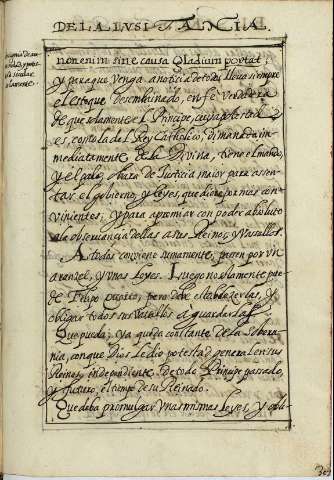 DE LA LUSITANCIA.
non enim sine causa Gladium portat;
y para que venga a noticia de todos lleva siempre
el estoque desembainado, en fè verdadera
de que solamente el Principe, cuya potestad
es, como la del Rey Catholico, dimanada in
mediatamente de la Divina, tiene el mando,
y el palo, y Vara de Justicia maior para assen
tar el govierno, y leyes, que diere por mas con
vinientes; y para apremiar con poder absoluto
a la observancia dellas a sus Reinos, y Vassallos.
A todos conviene sumamente, passen por un
aranzel, y unas leyes. Luego no solamente pue
de Felipo quarto, pero debe establezerlas, y
obligar todos sus Vassallos a guardarlas.
Que pueda; ya queda constante de la Sobera
nia, con que Dios le dio potestad general en sus
Reinos, independiente de todo Principe passado,
y futuro, el tiempo de su Reinado.
Que deba promulgar unas mismas leyes, y obli